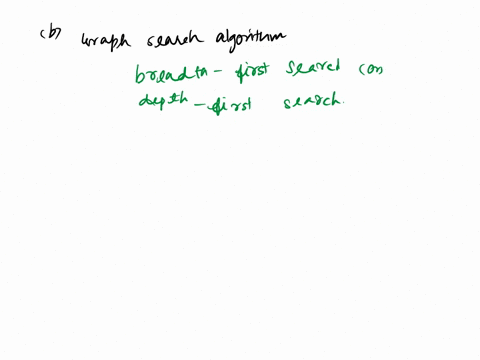 (b) Graph search algorithm
breadth - first search (or
depth - first search.